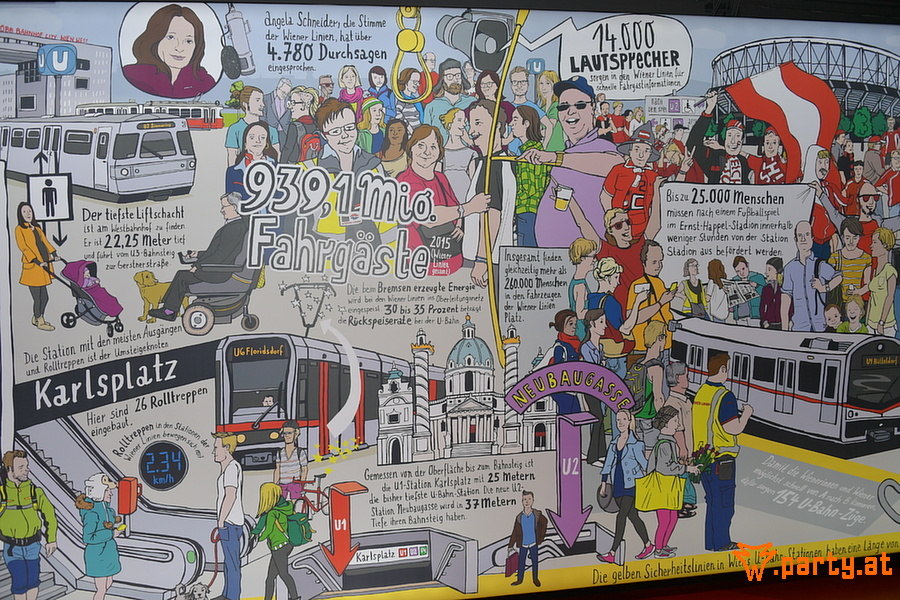 ÖBB BAHNHOF CITY WIEN WEST
U
Angela Schneider, die Stimme
der Wiener Linien, hat über
4.780 Durchsagen
eingesprochen.
14.000
LAUTSPRECHER
sorgen in den Wiener Linien für
schnelle Fahrgastinformationen.
U
Der tiefste Liftschacht
ist am Westbahnhof zu finden
Er ist 22,25 Meter tief
und führt vom U3-Bahnsteig
zur Gerstnerstraße
939,1 Mio.
Fahrgäste
2015
Wiener
Linien
gesamt
Bis zu 25.000 Menschen
müssen nach einem Fußballspiel
im Ernst-Happel-Stadion innerhalb
weniger Stunden von der Station
Stadion aus befördert werden.
Insgesamt finden
gleichzeitig mehr als
260.000 Menschen
in den Fahrzeugen
der Wiener Linien
Platz.
Die beim Bremsen erzeugte Energie
wird bei den Wiener Linien ins Oberleitungsnetz
eingespeist. 30 bis 35 Prozent beträgt
die Rückspeiserate bei der U-Bahn
Die Station mit den meisten Ausgängen
und Rolltreppen ist der Umsteigeknoten
Karlsplatz
Hier sind 26 Rolltreppen
eingebaut.
Rolltreppen in den Stationen der
Wiener Linien bewegen sich mit
2.34
km/h
U6 Floridsdorf
NEUBAUGASSE
Gemessen von der Oberfläche bis zum Bahnsteig ist
die U1-Station Karlsplatz mit 25 Metern
die bisher tiefste U-Bahn-Station. Die neue U2-
Station Neubaugasse wird in 37 Metern
Tiefe ihren Bahnsteig haben.
U1
U2
Karlsplatz U1 U2 U4
154 U-Bahn-Züge.
Die gelben Sicherheitslinien in Wiens U-Bahn-Stationen haben eine Länge von
w.party.at